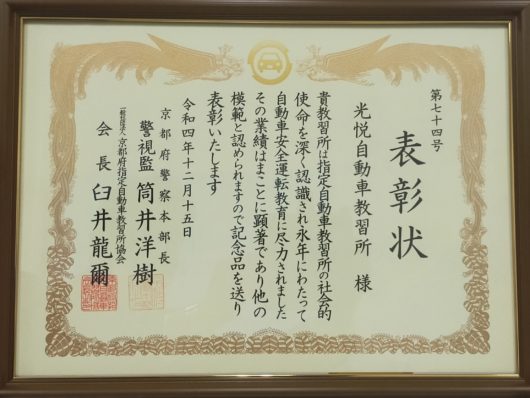 第七十四号
表彰状
光悦自動車教習所 様
貴教習所は指定自動車教習所の社会的
使命を深く認識され永年にわたって
自動車安全運転教育に尽力されました
その業績はまことに顕著であり他の
模範と認められますので記念品を送り
表彰いたします
令和四年十二月十五日
京都府警察本部長
警視監 筒井洋樹
一般社団法人 京都府指定自動車教習所協会
会長 臼井龍爾